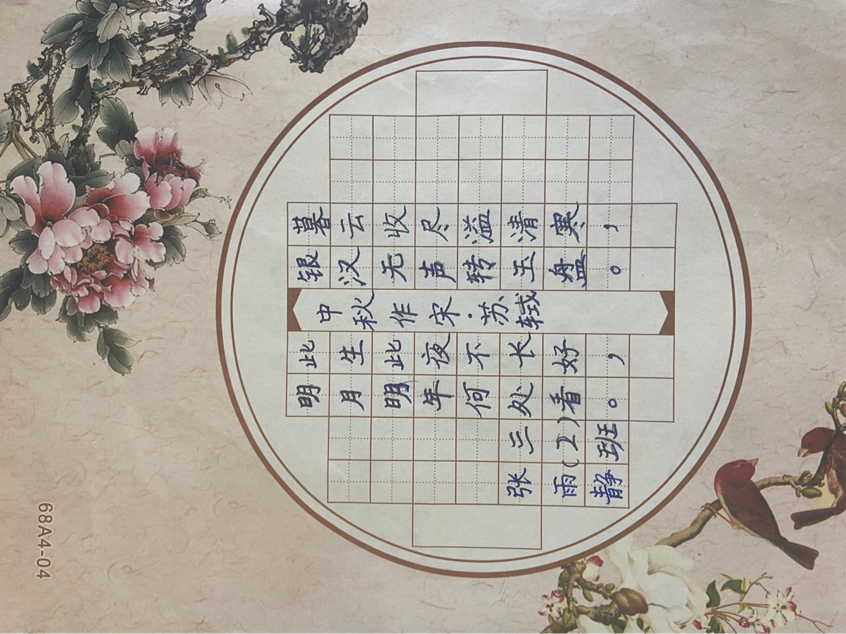 暮云收尽溢清寒，
银汉无声转玉盘。
中秋作 宋·苏轼
此生此夜不长好，
明月明年何处看。
三(2)班
张雨静
68A4-04